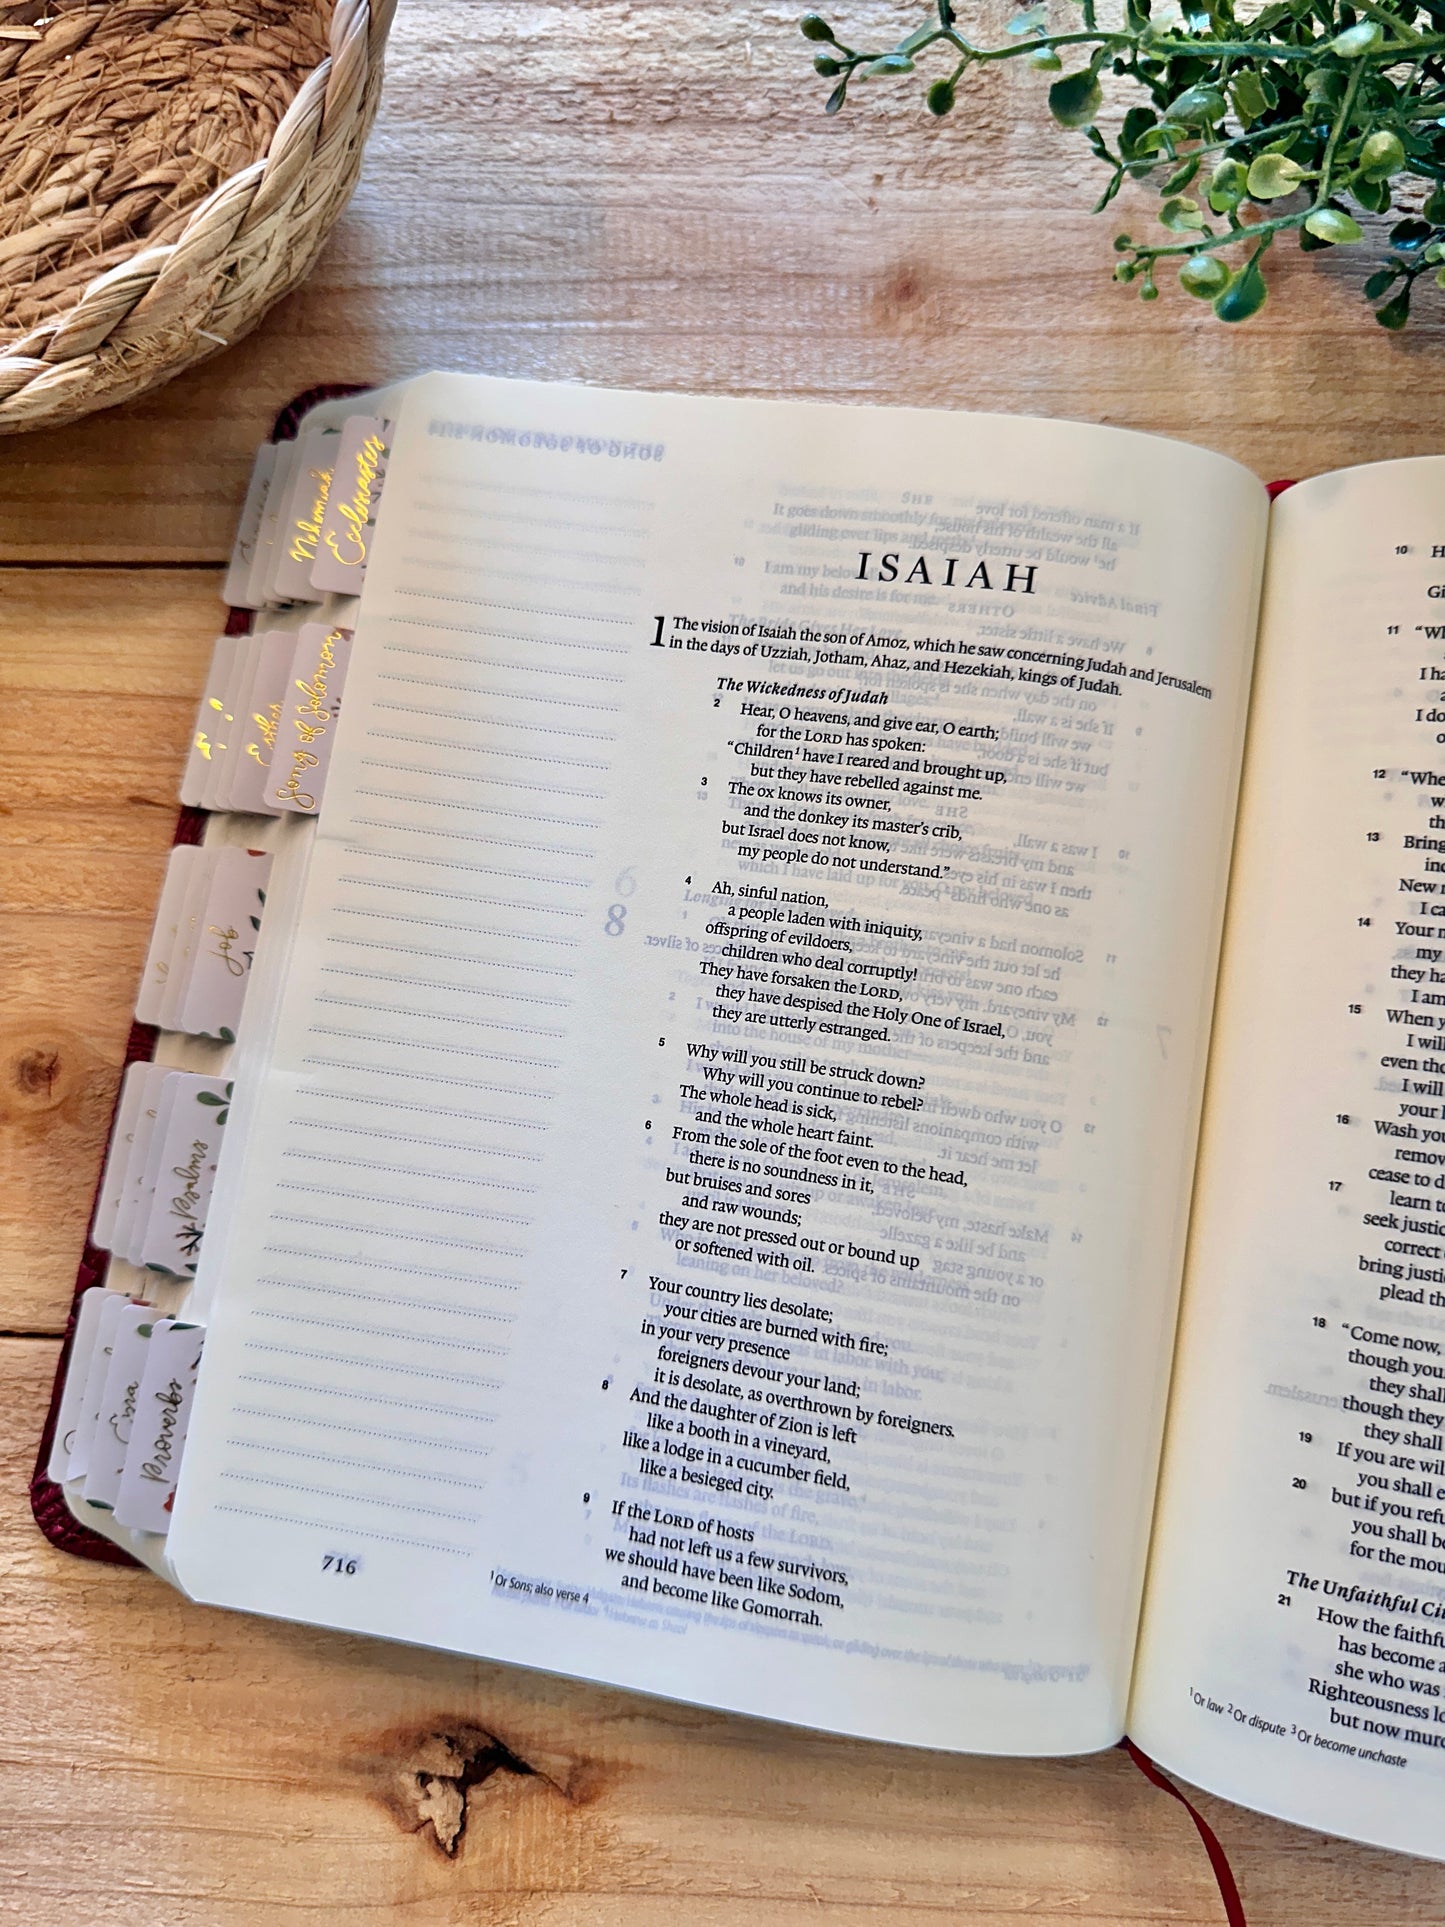 Nehemiah
Ecclesiastes
Esther
Song of Solomon
Job
Psalms
Ezra
Proverbs
ISAIAH
1 The vision of Isaiah the son of Amoz, which he saw concerning Judah and Jerusalem
in the days of Uzziah, Jotham, Ahaz, and Hezekiah, kings of Judah.
The Wickedness of Judah
2 Hear, O heavens, and give ear, O earth;
for the LORD has spoken:
“Children¹ have I reared and brought up,
but they have rebelled against me.
3 The ox knows its owner,
and the donkey its master’s crib,
but Israel does not know,
my people do not understand.”
4 Ah, sinful nation,
a people laden with iniquity,
offspring of evildoers,
children who deal corruptly!
They have forsaken the LORD,
they have despised the Holy One of Israel,
they are utterly estranged.
5 Why will you still be struck down?
Why will you continue to rebel?
The whole head is sick,
and the whole heart faint.
6 From the sole of the foot even to the head,
there is no soundness in it,
but bruises and sores
and raw wounds;
they are not pressed out or bound up
or softened with oil.
7 Your country lies desolate;
your cities are burned with fire;
in your very presence
foreigners devour your land;
it is desolate, as overthrown by foreigners.
8 And the daughter of Zion is left
like a booth in a vineyard,
like a lodge in a cucumber field,
like a besieged city.
9 If the LORD of hosts
had not left us a few survivors,
we should have been like Sodom,
and become like Gomorrah.
716
¹ Or Sons; also verse 4
10 H
Gi
11 “Wh
I ha
I do
o
12 “Whe
w
th
13 Bring
inc
New m
I ca
14 Your n
my
they ha
I am
15 When y
I will
even tho
I will
your h
16 Wash you
remov
cease to d
17 learn to
seek justic
correct
bring justi
plead th
18 “Come now,
though you
they shall
though they
they shall
19 If you are wil
you shall e
20 but if you refu
you shall be
for the mou
The Unfaithful Ci
21 How the faithfu
has become a
she who was
Righteousness lo
but now murd
¹ Or law ² Or dispute ³ Or become unchaste